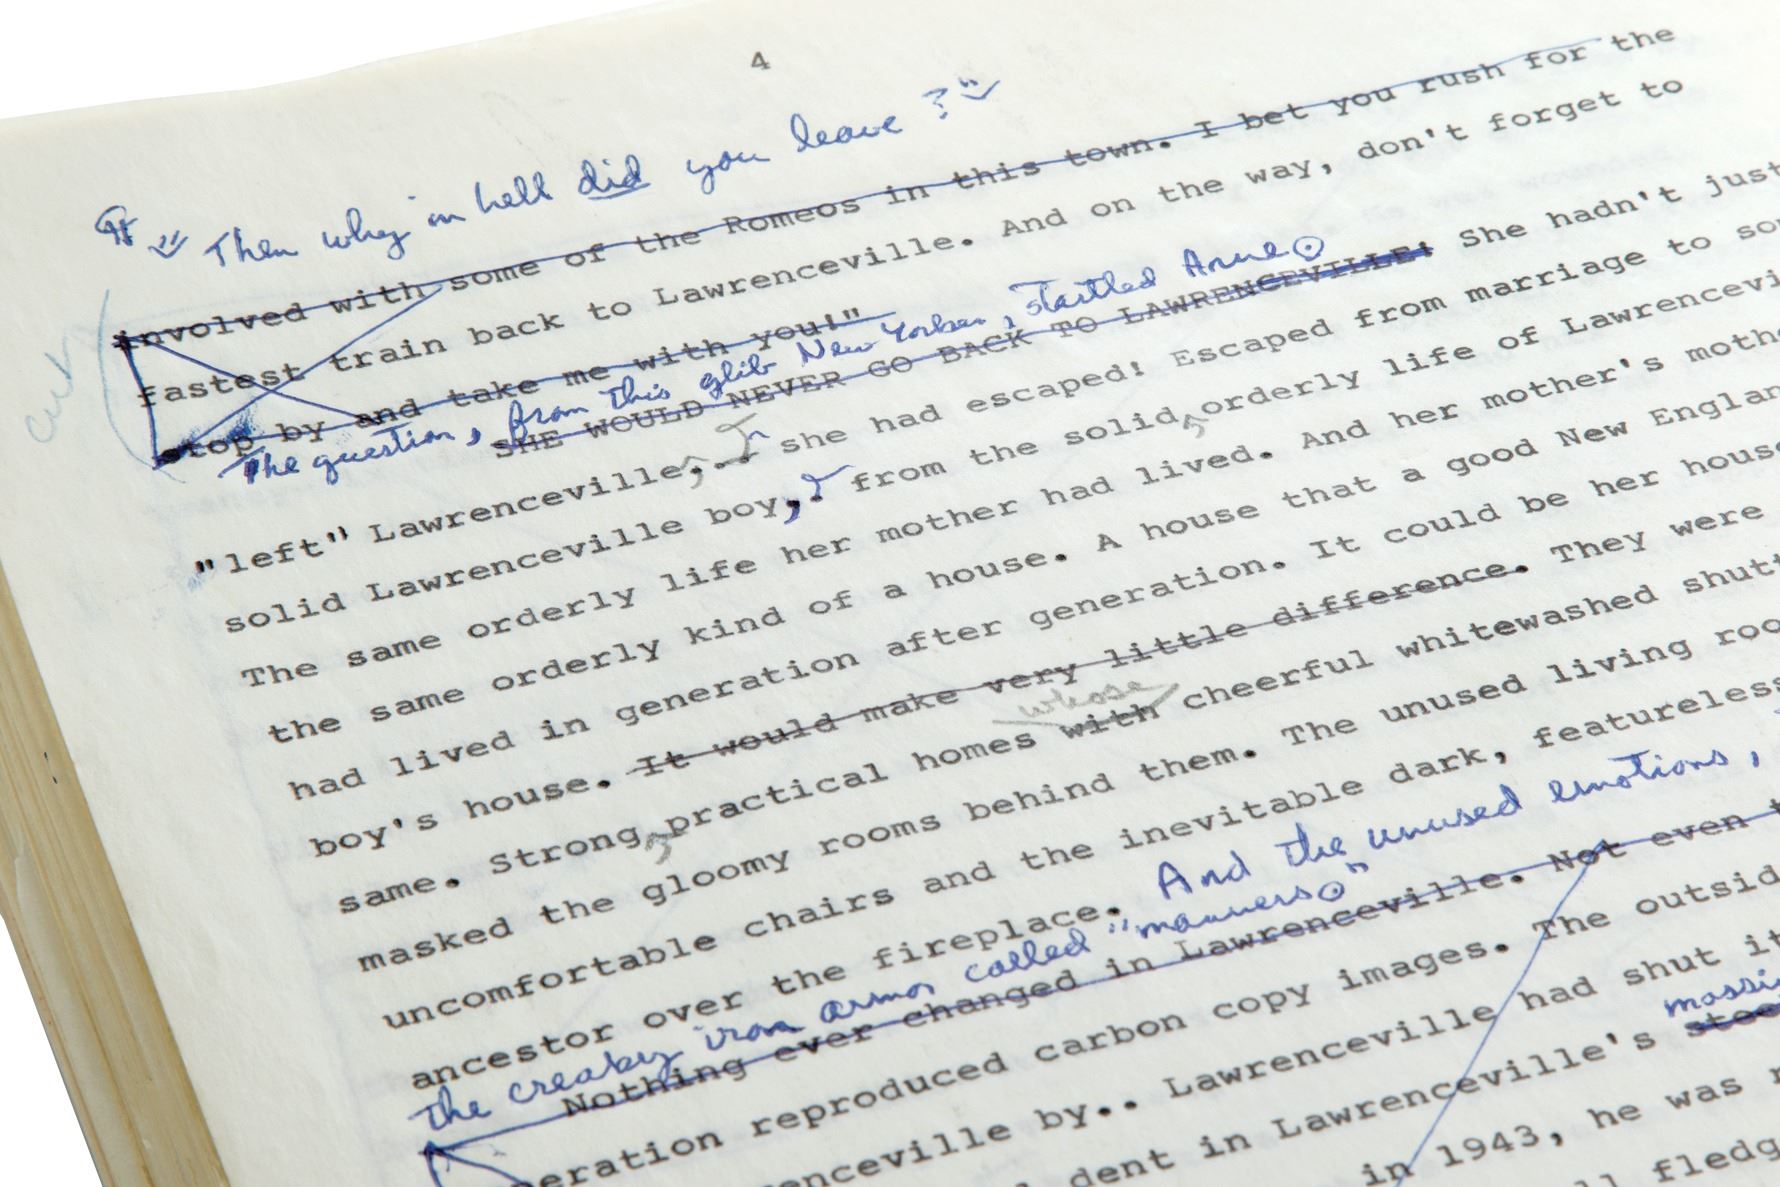 4
" Then why in hell did you leave?"
involved with some of the Romeos in this town. I bet you rush for the
fastest train back to Lawrenceville. And on the way, don't forget to
stop by and take me with you!"
The question, from this glib New Yorker, startled Anne.
SHE WOULD NEVER GO BACK TO LAWRENCEVILLE! She hadn't just
"left" Lawrenceville, she had escaped! Escaped from marriage to
solid Lawrenceville boy, from the solid, orderly life of
The same orderly life her mother had lived. And her mother's
the same orderly kind of a house. A house that a good New
had lived in generation after generation. It could be her
boy's house. It would make very little difference. They were
whose
same. Strong, practical homes with cheerful whitewashed
masked the gloomy rooms behind them. The unused living
uncomfortable chairs and the inevitable dark,
ancestor over the fireplace. And the unused emotions,
the creaky iron armor called "manners."
Nothing ever changed in Lawrenceville. Not even
reproduced carbon copy images. The
by.. Lawrenceville had shut
in Lawrenceville's
in 1943, he was
cut